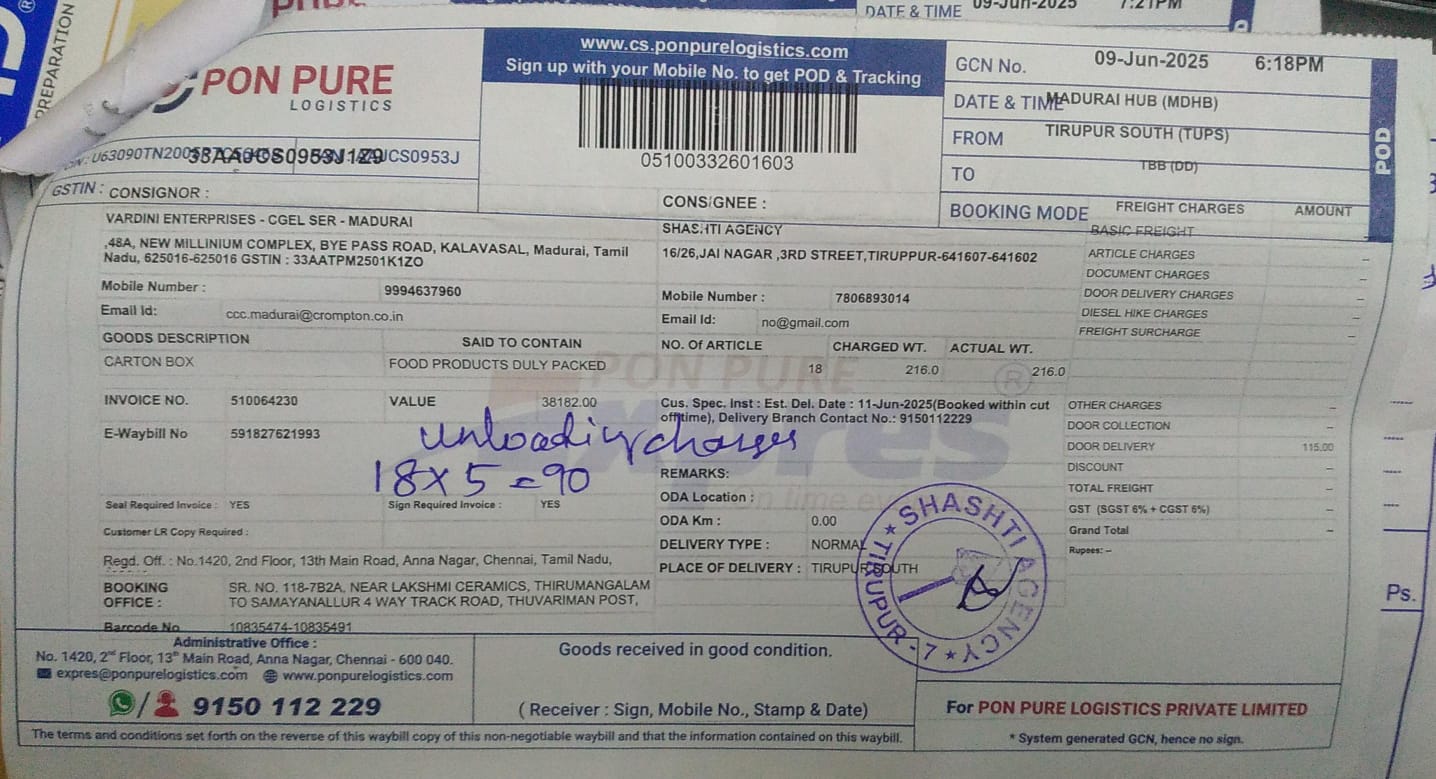 DATE & TIME 09-Jun-2025 7:21PM
PREPARATION
PON PURE
LOGISTICS
www.cs.ponpurelogistics.com
Sign up with your Mobile No. to get POD & Tracking
05100332601603
GCN No. 09-Jun-2025 6:18PM
DATE & TIME MADURAI HUB (MDHB)
FROM TIRUPUR SOUTH (TUPS)
TO TBB (DD)
BOOKING MODE FREIGHT CHARGES AMOUNT
POD
33AAJCS0953J1Z9
GSTIN : CONSIGNOR :
VARDINI ENTERPRISES - CGEL SER - MADURAI
,48A, NEW MILLINIUM COMPLEX, BYE PASS ROAD, KALAVASAL, Madurai, Tamil
Nadu, 625016-625016 GSTIN : 33AATPM2501K1ZO
Mobile Number : 9994637960
Email Id: ccc.madurai@crompton.co.in
CONSIGNEE :
SHASHTI AGENCY
16/26,JAI NAGAR ,3RD STREET,TIRUPPUR-641607-641602
Mobile Number : 7806893014
Email Id: no@gmail.com
BASIC FREIGHT
ARTICLE CHARGES –
DOCUMENT CHARGES –
DOOR DELIVERY CHARGES –
DIESEL HIKE CHARGES –
FREIGHT SURCHARGE –
GOODS DESCRIPTION SAID TO CONTAIN NO. Of ARTICLE CHARGED WT. ACTUAL WT.
CARTON BOX FOOD PRODUCTS DULY PACKED 18 216.0 216.0
PON PURE
INVOICE NO. 510064230 VALUE 38182.00
E-Waybill No 591827621993
Cus. Spec. Inst : Est. Del. Date : 11-Jun-2025(Booked within cut
off time), Delivery Branch Contact No.: 9150112229
unloading charges
18 x 5 = 90
OTHER CHARGES –
DOOR COLLECTION –
DOOR DELIVERY 115.00
DISCOUNT –
TOTAL FREIGHT –
GST (SGST 6% + CGST 6%) –
Grand Total –
Rupees: –
REMARKS:
ODA Location :
ODA Km : 0.00
DELIVERY TYPE : NORMAL
PLACE OF DELIVERY : TIRUPUR SOUTH
Seal Required Invoice : YES Sign Required Invoice : YES
Customer LR Copy Required :
Regd. Off. : No.1420, 2nd Floor, 13th Main Road, Anna Nagar, Chennai, Tamil Nadu,
BOOKING OFFICE : SR. NO. 118-7B2A, NEAR LAKSHMI CERAMICS, THIRUMANGALAM
TO SAMAYANALLUR 4 WAY TRACK ROAD, THUVARIMAN POST,
Barcode No 10835474-10835491
SHASHTI AGENCY
TIRUPUR - 7
Administrative Office :
No. 1420, 2nd Floor, 13th Main Road, Anna Nagar, Chennai - 600 040.
expres@ponpurelogistics.com www.ponpurelogistics.com
9150 112 229
Goods received in good condition.
( Receiver : Sign, Mobile No., Stamp & Date)
For PON PURE LOGISTICS PRIVATE LIMITED
* System generated GCN, hence no sign.
The terms and conditions set forth on the reverse of this waybill copy of this non-negotiable waybill and that the information contained on this waybill.
Ps.